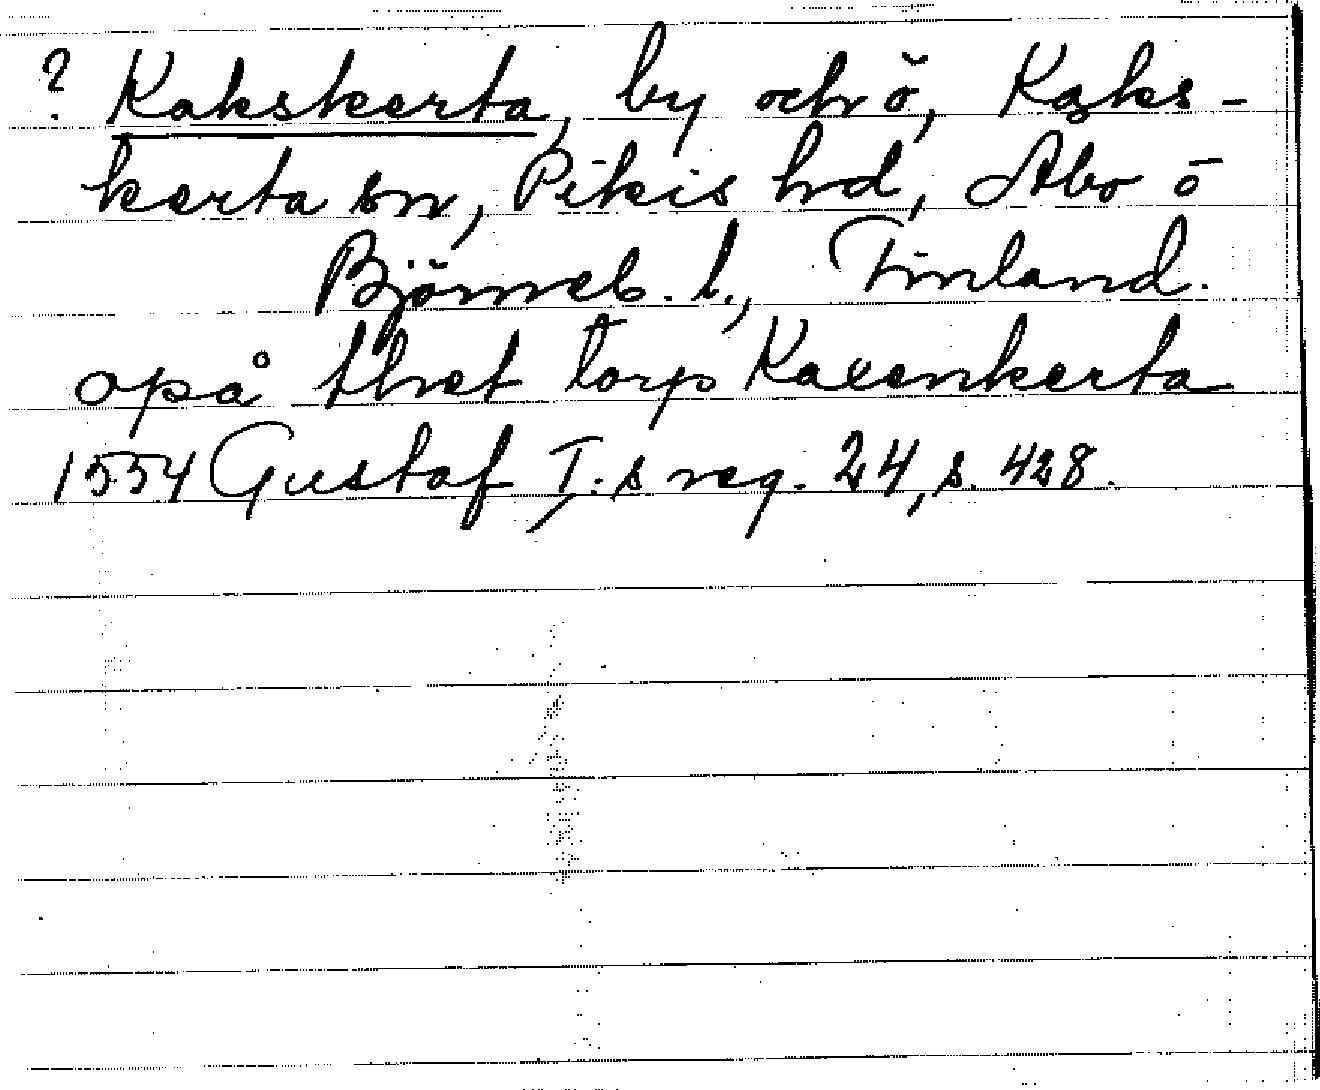 ? Kakskerta, by och ö, Kaks-
kerta sn, Pikis hd, Åbo o
Björneb. l., Finland.
opå thet torp Kaxenkerta
1554 Gustaf I:s reg. 24, s. 428.